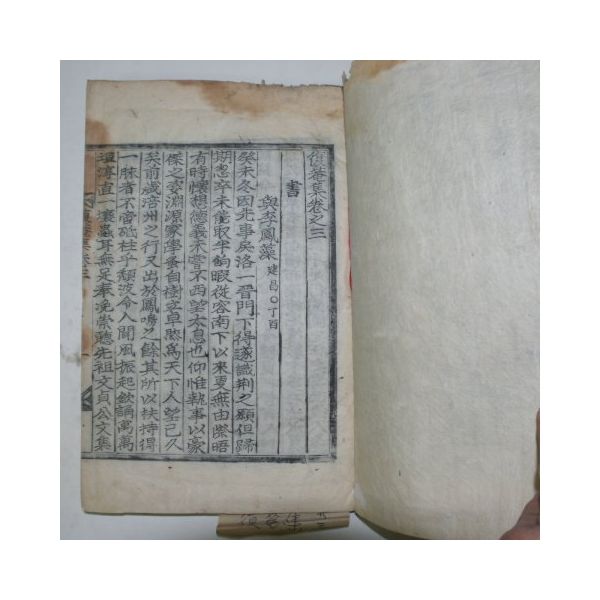 集卷之三
書
與李鳳藻 建昌○丁酉
癸未冬因先事戾洛一晉門下得遂識荆之願但歸
期悤卒未能取半餉暇從容南下以來更無由際晤
有時懷想德義未嘗不西望太息也仰惟執事以豪
傑之姿淵源家學蚤自樹立卓然爲天下人望已久
矣前歲涪州之行又出於鳳鳴之餘其所以扶持得
一脉者不啻砥柱乎頹波令人聞風振起欽誦萬萬
直一壤蟲耳無足奉浼崇聽先祖文貞公文集
集